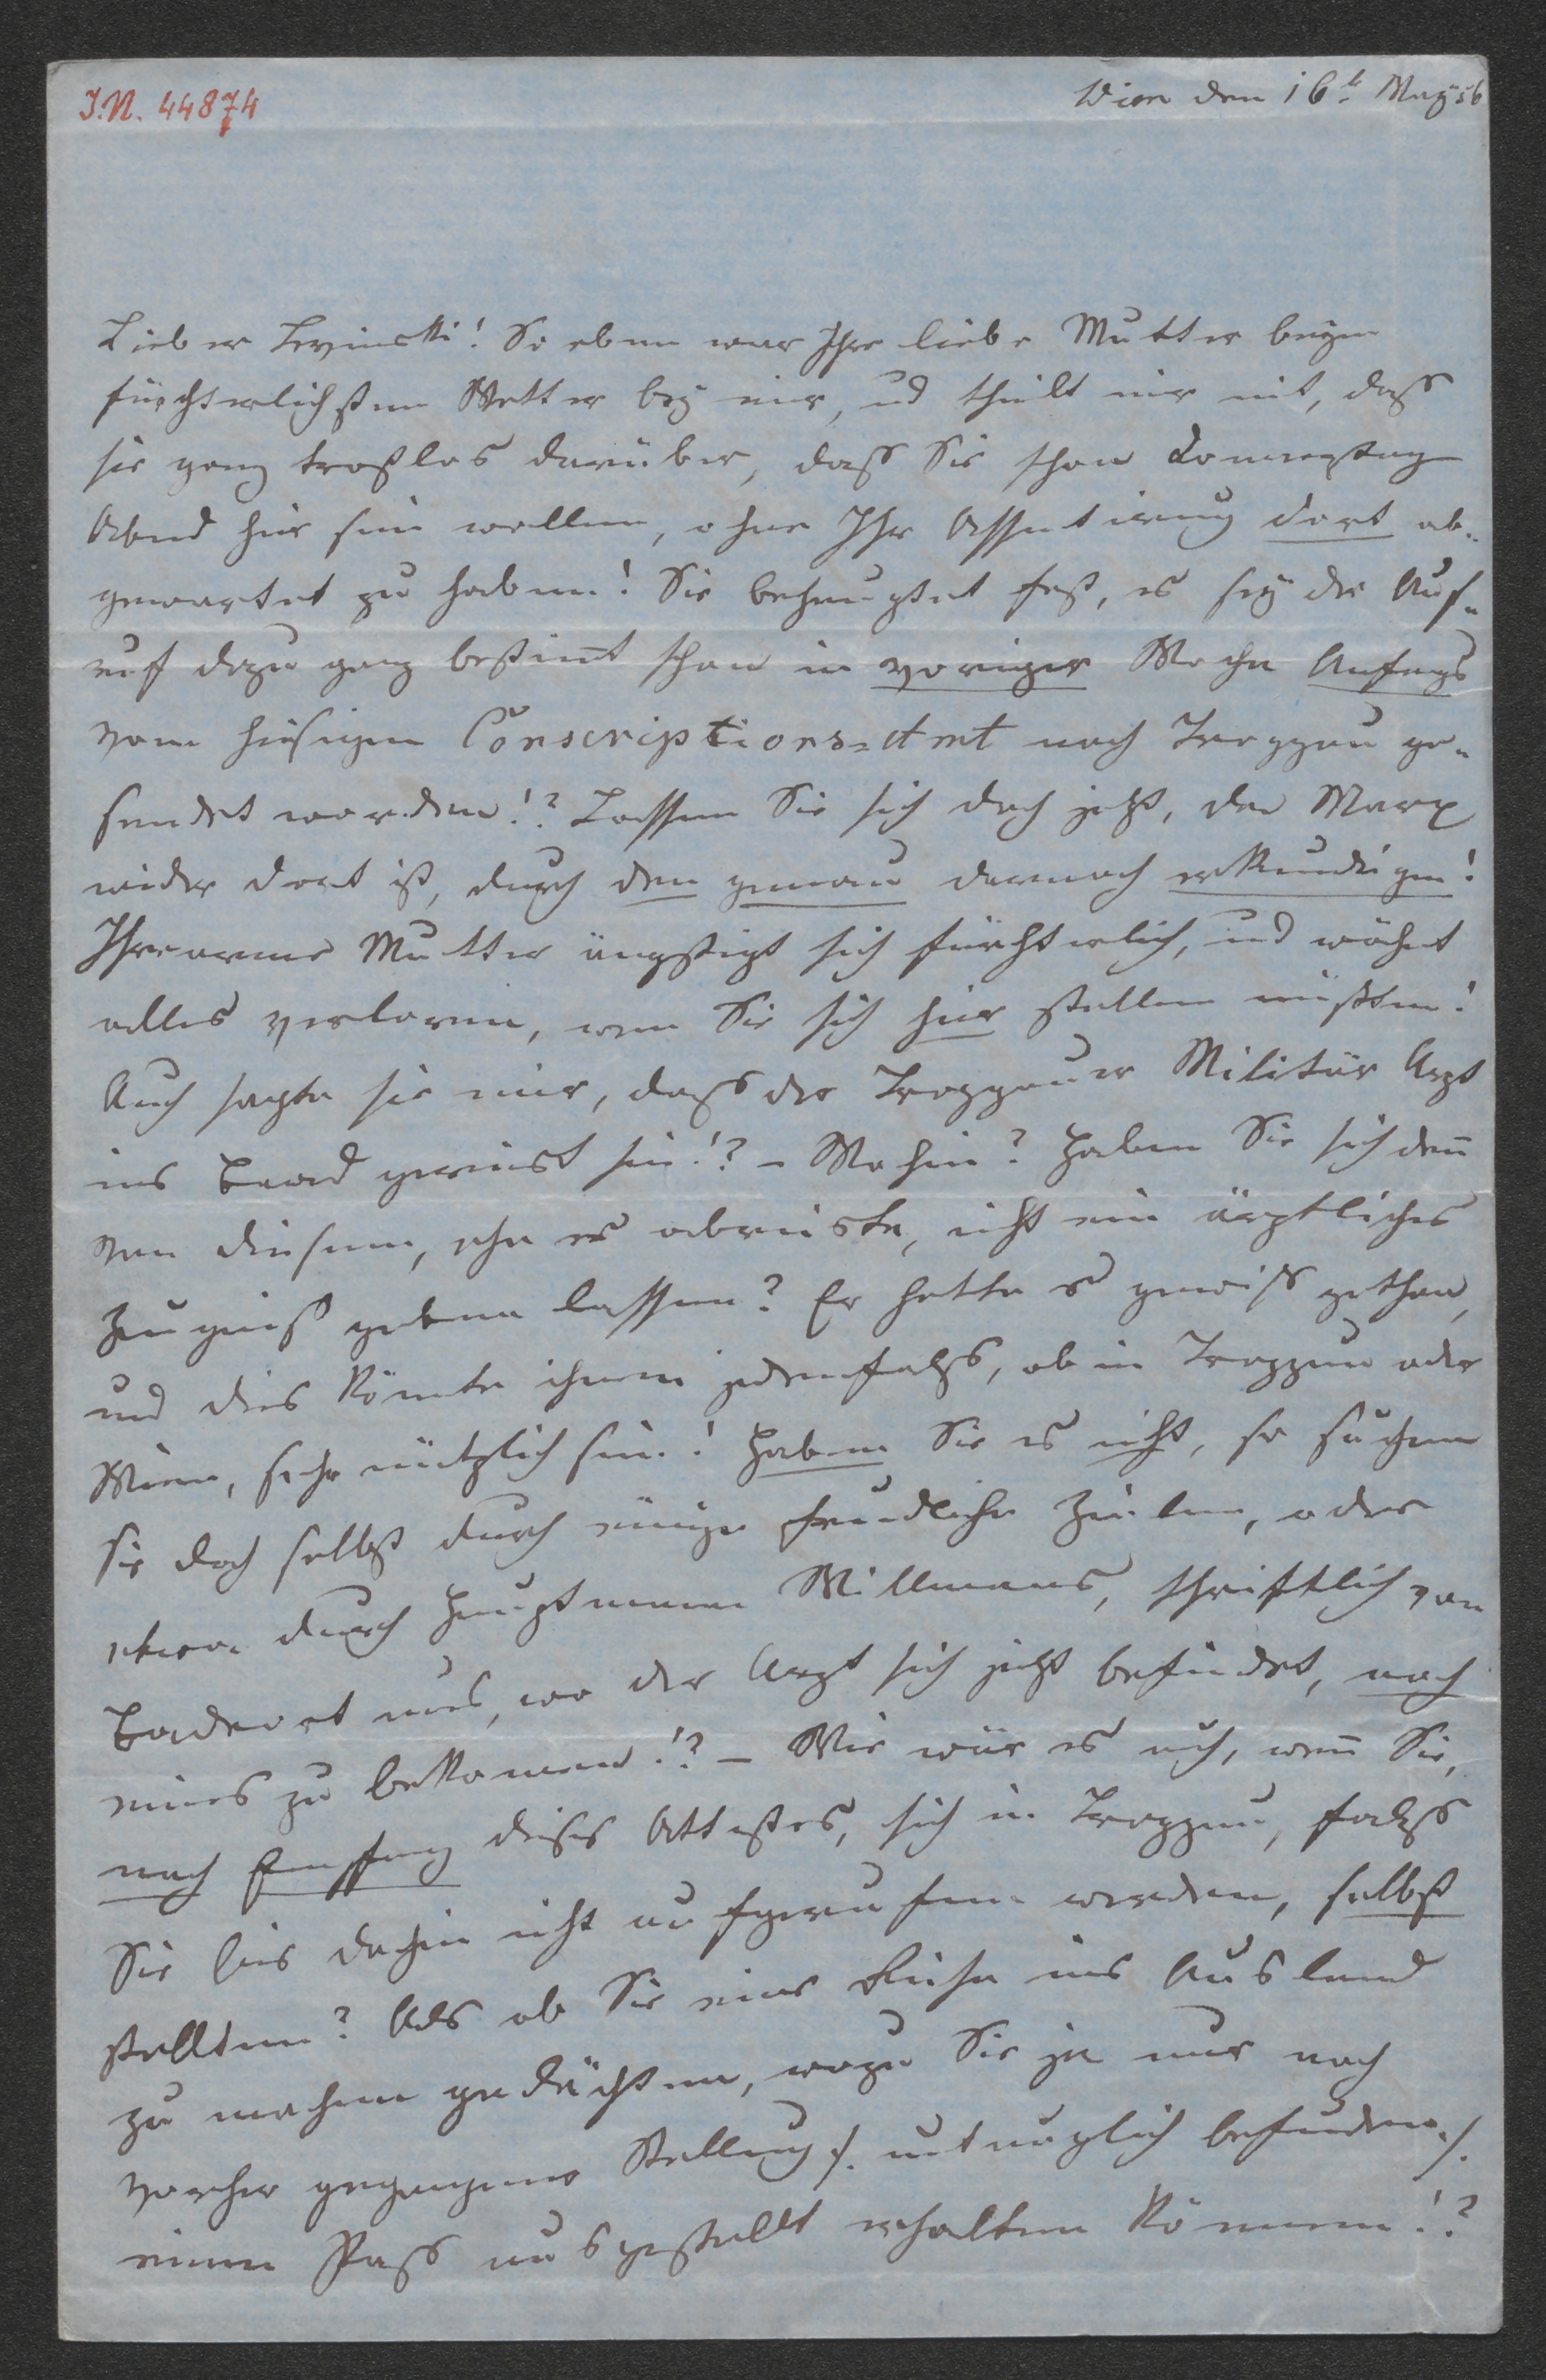 I.N. 44874
Wien den 16t. May 56
Lieber Levinski! So eben war Ihre liebe Mutter beym
fürchterlichsten Wetter bey mir, und theilt mir mit, daß
sie ganz trostlos darüber, daß Sie schon Donnerstag
Abend hier sein wollen, ohne Ihr Assentirung dort ab-
gewartet zu haben! Sie behauptet fest, es sey die Auf-
ruf dazu ganz bestimt schon in voriger Woche Anfangs
vom hiesigen Conscriptions=Amt nach Troppau ge-
sendet worden!? Lassen Sie sich doch jetzt, da Marx
wieder dort ist, durch den genau darnach erkundigen!
Ihre arme Mutter ängstigt sich fürchterlich, und wähnt
alles verloren, wen Sie sich hier stellen müßten!
Auch sagte sie mir, daß der Troppauer Militär Arzt
ins Baad gereist sei!? – Wohin? Haben Sie sich den
von diesem, ehe er abreiste, nicht ein ärztliches
Zeugniß geben lassen? Er hätte es gewiß gethan,
und dies könnte ihnen jedenfalls, ob in Troppau oder
Wien, sehr nützlich sein! Haben Sie es nicht, so suchen
sie doch selbst durch einige freundliche Zeilen, oder
etwa durch Hauptmann Willmans, schriftlich von
Badeort aus, wo der Arzt sich jetzt befindet, noch
eines zu bekommen!? – Wie wär es auch, wen Sie,
nach Empfang dieses Attestes, sich in Troppau, falls
Sie bis dahin nicht aufgerufen werden, selbst
stellten? Als ob Sie eine Reise ins Ausland
zu machen gedächten, wozu Sie ja nur nach
vorher gegangener Stellung /: untauglich befunden :/
einen Paß ausgestellt erhalten können!?